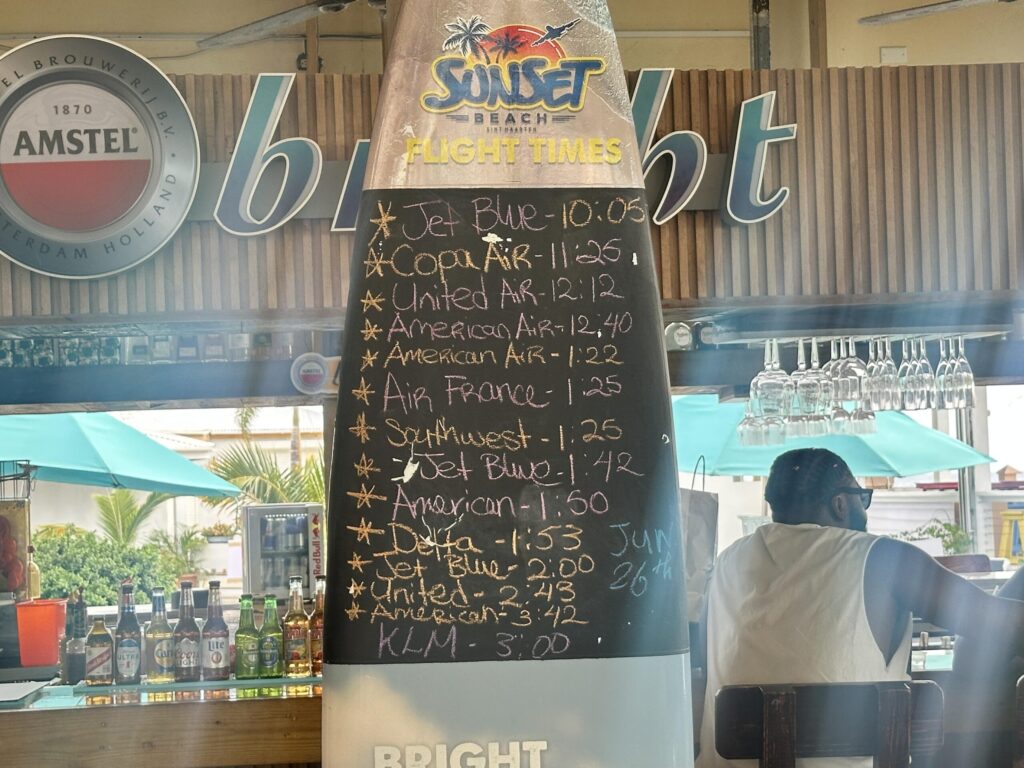 SUNSET
BEACH
SINT MAARTEN
FLIGHT TIMES
* Jet Blue - 10:05
* Copa Air - 11:25
* United Air - 12:12
* American Air - 12:40
* American Air - 1:22
* Air France - 1:25
* Southwest - 1:25
* Jet Blue - 1:42
* American - 1:50
* Delta - 1:53
* Jet Blue - 2:00
* United - 2:43
* American - 3:42
KLM - 3:00
Jun
26th
BRIGHT
EL BROUWERIJ B.V.
1870
AMSTEL
TERDAM HOLLAND
b ht
AMSTEL
Red Bull
ULTRA
Coors
Lite